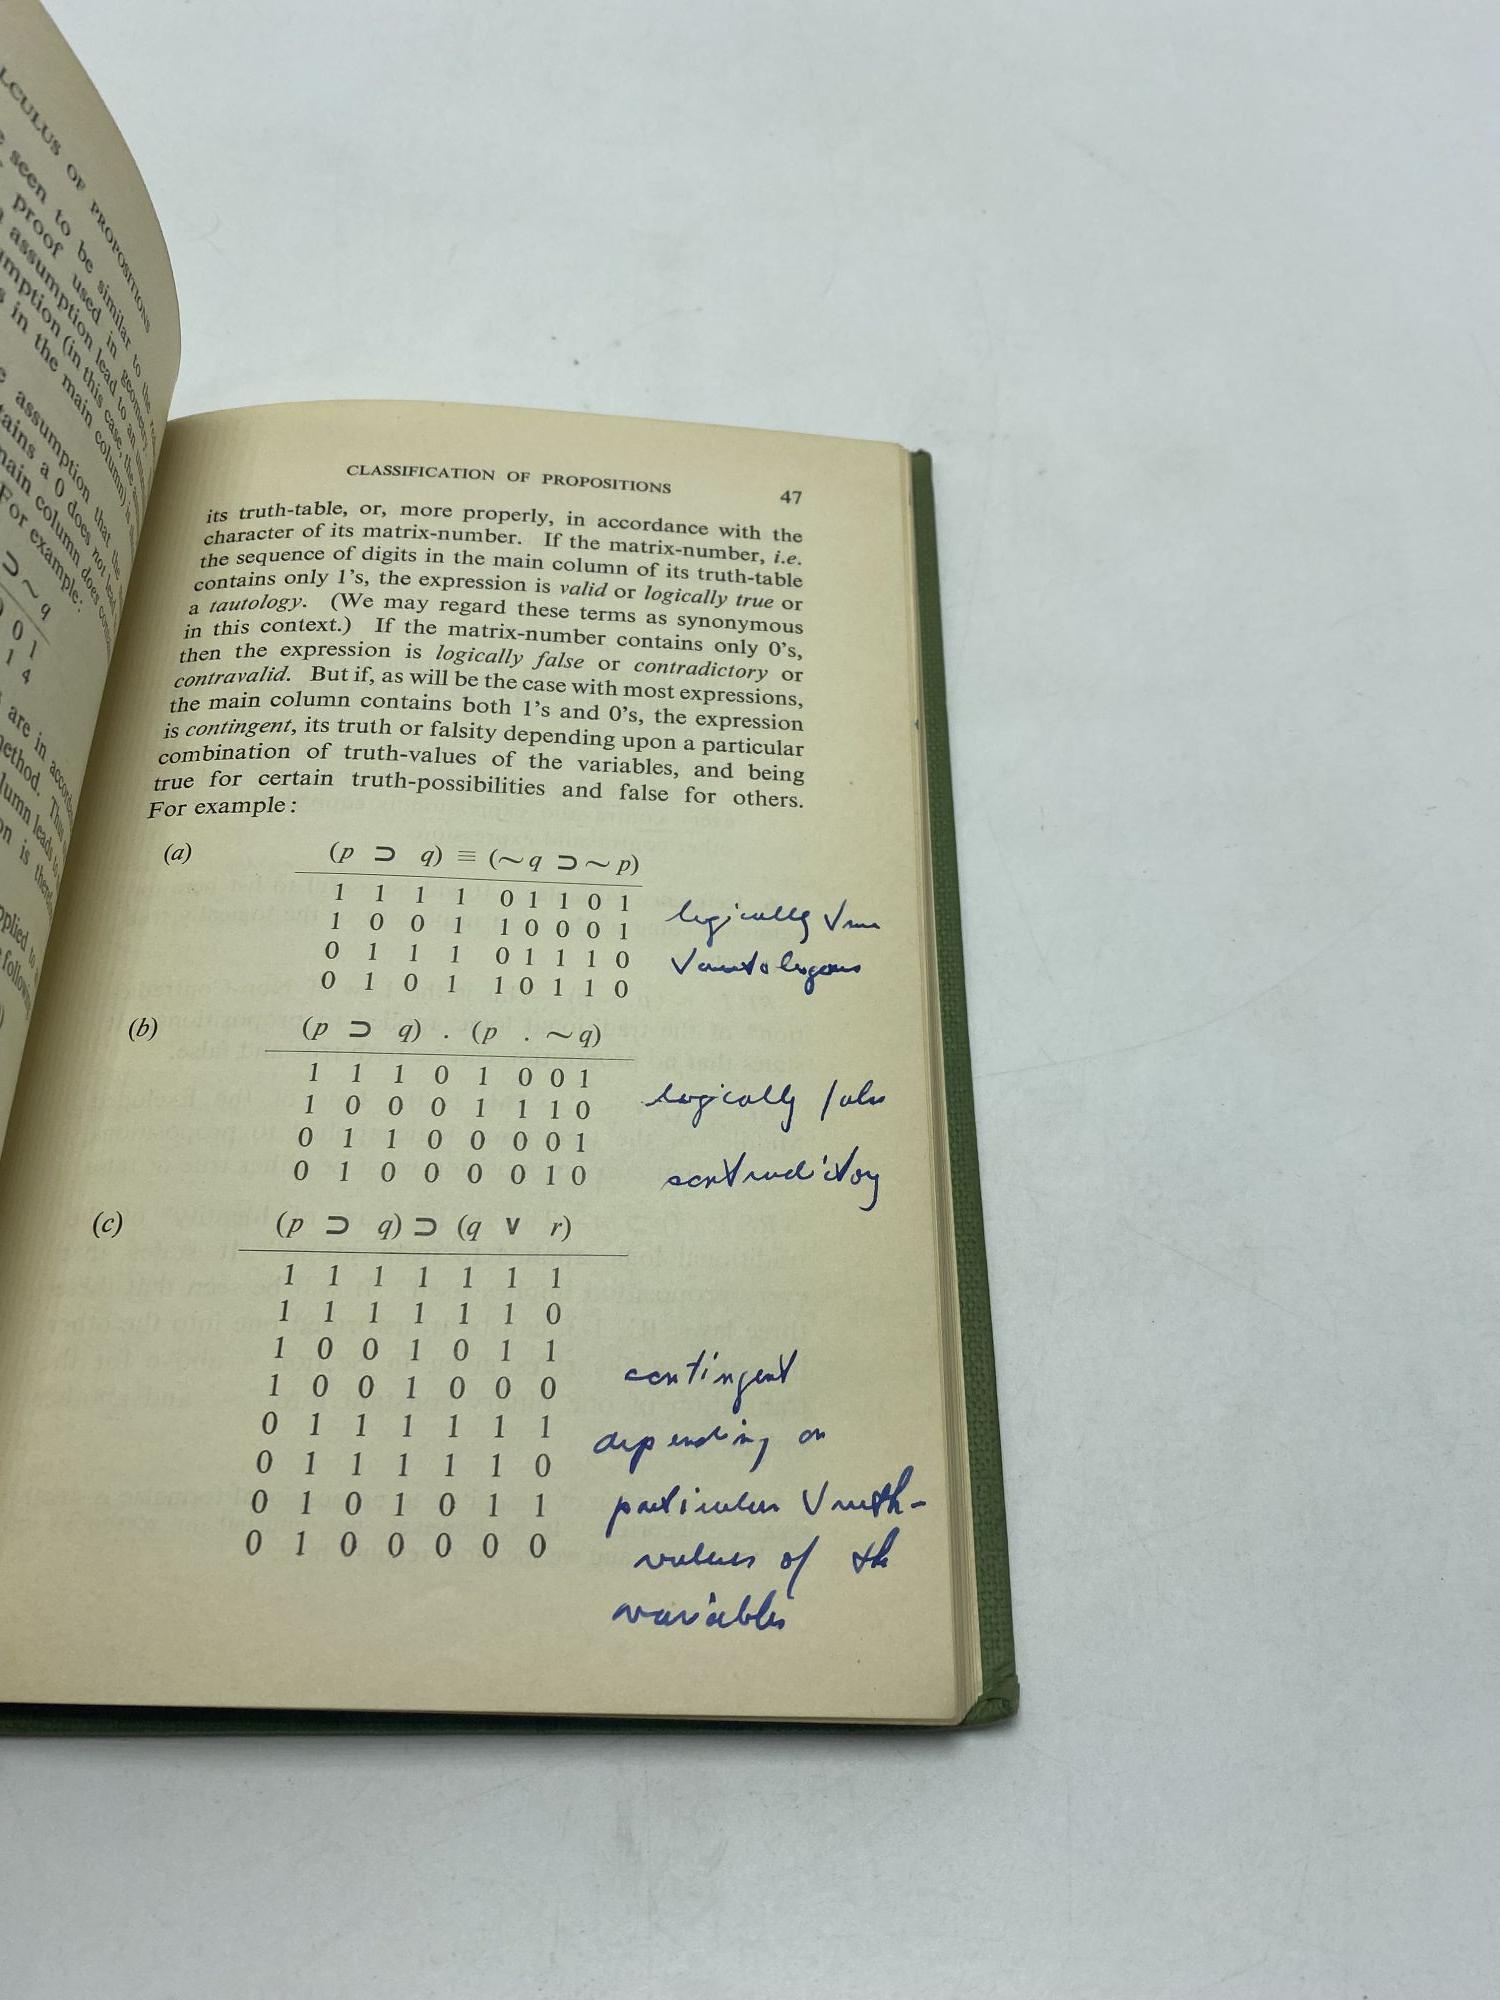 LCULUS OF PROPOSITIONS
seen to be similar to the
proof used in geometry
assumption lead to an
mption (in this case, the
s in the main column) is
assumption that the
tains a 0 does not lead
main column does
For example:
⊃ ~ q
0 0 1
1 4
are in
method. Thus
lumn leads to
on is
pplied to
following
CLASSIFICATION OF PROPOSITIONS 47
its truth-table, or, more properly, in accordance with the
character of its matrix-number. If the matrix-number, i.e.
the sequence of digits in the main column of its truth-table
contains only 1's, the expression is valid or logically true or
a tautology. (We may regard these terms as synonymous
in this context.) If the matrix-number contains only 0's,
then the expression is logically false or contradictory or
contravalid. But if, as will be the case with most expressions,
the main column contains both 1's and 0's, the expression
is contingent, its truth or falsity depending upon a particular
combination of truth-values of the variables, and being
true for certain truth-possibilities and false for others.
For example:
(a) (p ⊃ q) ≡ (~q ⊃ ~p)
1 1 1 1 0 1 1 0 1
1 0 0 1 1 0 0 0 1 logically true
0 1 1 1 0 1 1 1 0
0 1 0 1 1 0 1 1 0 tautologous
(b) (p ⊃ q) . (p . ~q)
1 1 1 0 1 0 0 1
1 0 0 0 1 1 1 0 logically false
0 1 1 0 0 0 0 1
0 1 0 0 0 0 1 0 contradictory
(c) (p ⊃ q) ⊃ (q v r)
1 1 1 1 1 1 1
1 1 1 1 1 1 0
1 0 0 1 0 1 1
1 0 0 1 0 0 0 contingent
0 1 1 1 1 1 1 depending on
0 1 1 1 1 1 0
0 1 0 1 0 1 1 particular truth-
0 1 0 0 0 0 0 values of the
variables